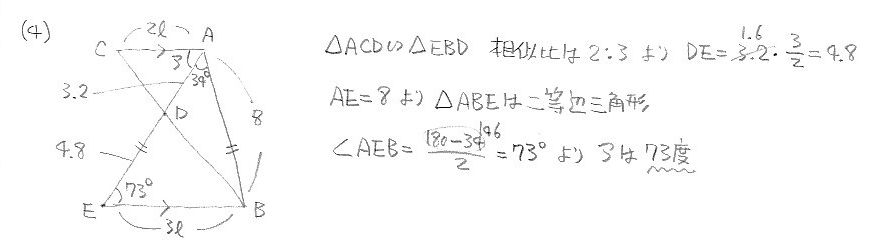 (4)
2ℓ
C A
ウ 34°
3.2
D
8
4.8
73°
E B
3ℓ
△ACD∽△EBD 相似比は2:3より DE=3.2・3/2=4.8
1.6
AE=8より△ABEは二等辺三角形
∠AEB=(180-34)/2=73°よりウは73度
146